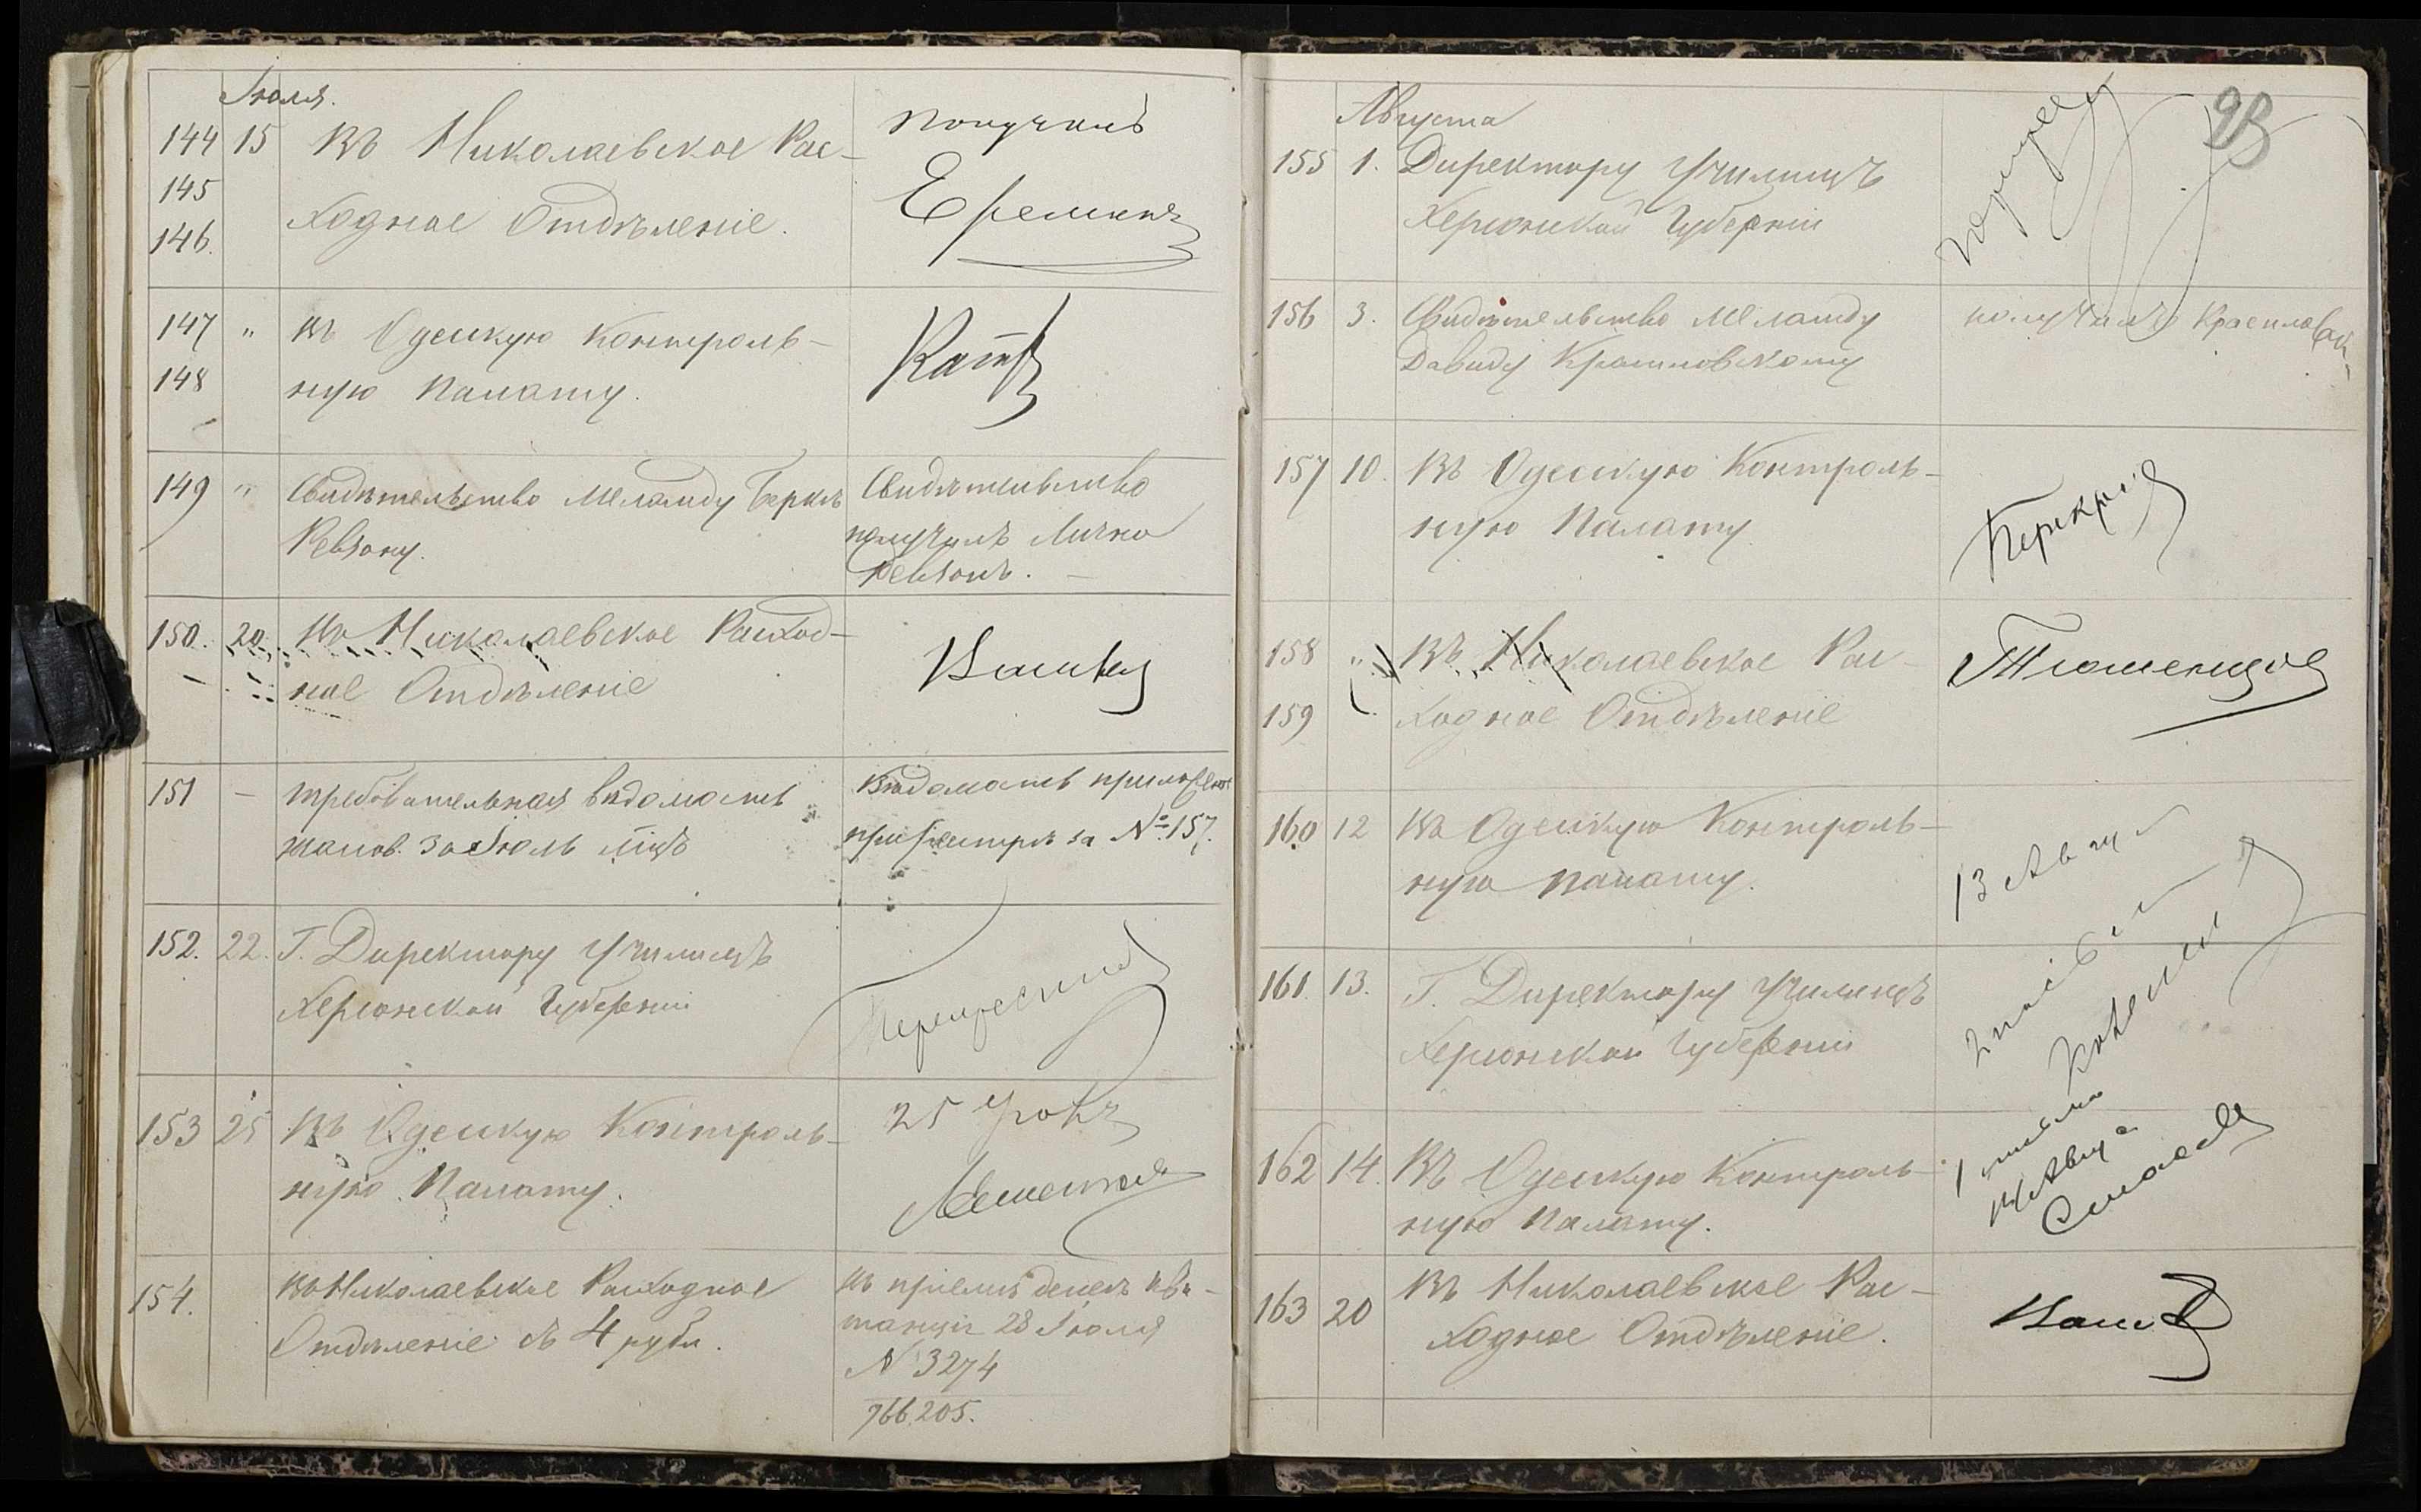 Іюля.
144 15 Въ Николаевское Рас-
145
ходное Отдѣленіе.
146.
получилъ
Еремин
147 „ въ Одесскую Контроль-
148 ную Палату.
149 „ Свидѣтельство Меламду Беркѣ
Ревзону.
Свидѣтельство
получилъ Лично
Ревзонъ.
150. 20. Въ Николаевское Расход-
ное Отдѣленіе
151 — требовательная вѣдомость
жалов. за Іюль мцъ
Вѣдомость приложена
при реэстрѣ за №157.
152. 22. Г. Директору Училищъ
Херсонской Губерніи
153 25 Въ Одесскую Контроль-
ную Палату.
25
154. въ Николаевское Расходное
Отдѣленіе съ 4 рубл.
въ пріемѣ денегъ кви-
танція 28 Іюля
№ 3274
766.205.
93
Августа
155 1. Директору Училищъ
Херсонской Губерніи
156 3. Свидѣтельство Меламду
Давиду Красиловскому
получилъ Красиловск
157 10. Въ Одесскую Контроль-
ную Палату
158 „ Въ Николаевское Рас-
159 ходное Отдѣленіе
Тюменцов
160 12 Въ Одесскую Контроль-
ную Палату.
13 Авгус
161. 13. Г. Директору Училищъ
Херсонской Губерніи
162 14. Въ Одесскую Контроль-
ную Палату.
163 20 Въ Николаевское Рас-
ходное Отдѣленіе.